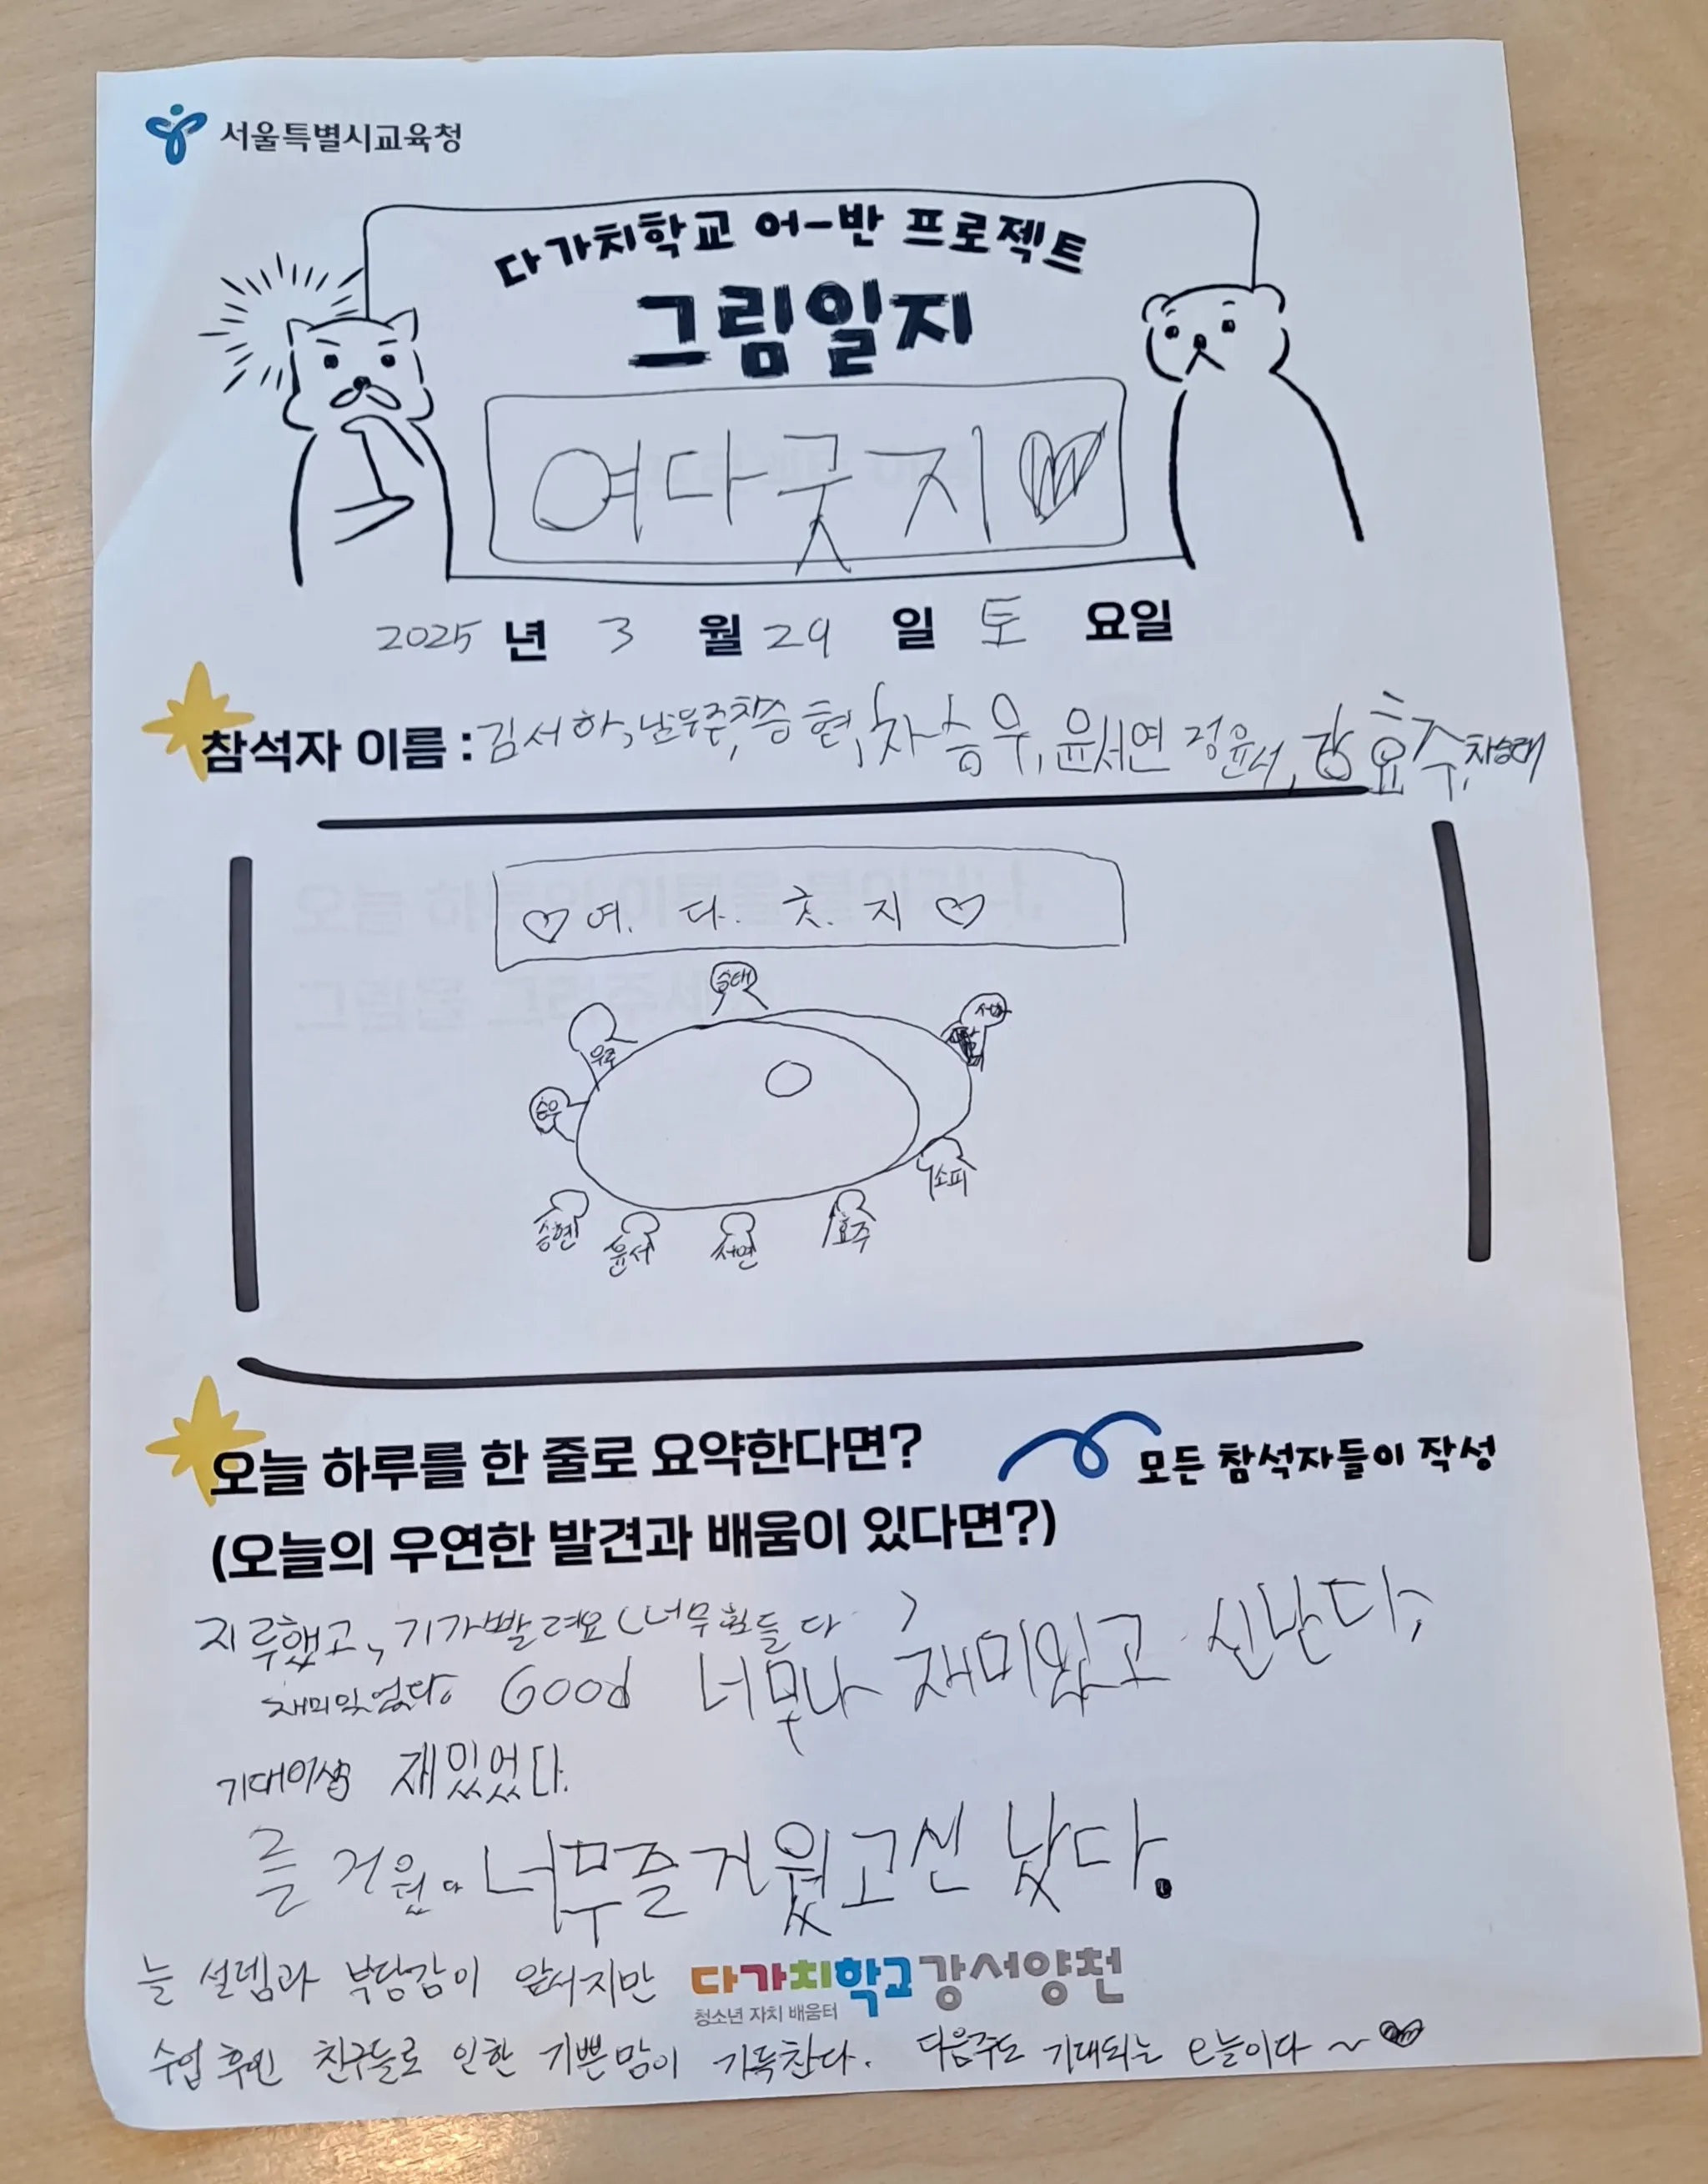 서울특별시교육청
다가치학교 어-반 프로젝트
그림일지
여다굿지♡
2025 년 3 월 29 일 토 요일
참석자 이름 : 김서하, 남우주, 차승현, 차승우, 윤서연 정윤서, 강효주, 차승태
♡ 여. 다. 굿. 지 ♡
승태
서하
우주
승우
소피
승현 윤서 서연 효주
오늘 하루를 한 줄로 요약한다면?
모든 참석자들이 작성
(오늘의 우연한 발견과 배움이 있다면?)
지루했고, 기가빨려요 (너무힘들다)
재미있었다. Good 너무나 재미있고 신난다;
기대이상 재밌었다.
즐거웠다 너무즐거웠고신났다.
늘 설렘과 부담감이 앞서지만
다가치학교강서양천
청소년 자치 배움터
수업 후엔 친구들로 인한 기쁜맘이 가득찬다. 다음주도 기대되는 오늘이다~♡